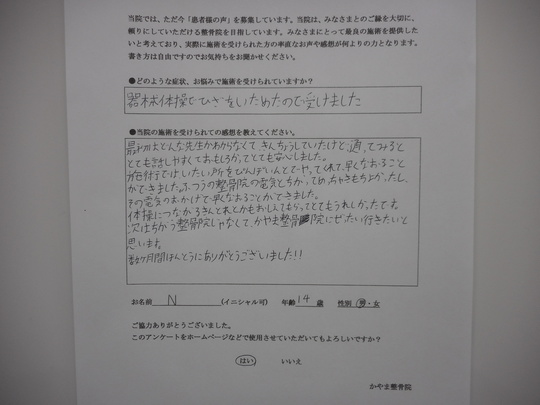 当院では、ただ今「患者様の声」を募集しています。当院は、みなさまとのご縁を大切に、
頼りにしていただける整骨院を目指しています。みなさまにとって最良の施術を提供した
いと考えており、実際に施術を受けられた方の率直なお声や感想が何よりの力となります。
書き方は自由ですのでお気持ちをお聞かせください。
●どのような症状、お悩みで施術を受けられていますか？
器械体操でひざをいためたので受けました
●当院の施術を受けられての感想を教えてください。
最初はどんな先生かわからなくて、きんちょうしていたけど、通ってみると
とても話しやすくておもしろかってとても安心しました。
治りょうではいたい所をピンポイントでやってくれて、早くなおること
ができました。ふつうの整骨院の電気とちがってめっちゃきもちよかったし、
その電気のおかげで早くなおることができました。
体操につながるきんトレとかもおしえてもらってとてもうれしかったです。
次はちがう整骨院じゃなくて、かやま整骨院にぜったい行きたいと
思います。
数ヶ月間ほんとうにありがとうございました!!
お名前 N （イニシャル可） 年齢 14 歳 性別 男・女
ご協力ありがとうございました。
このアンケートをホームページなどで使用させていただいてもよろしいですか？
はい いいえ
かやま整骨院